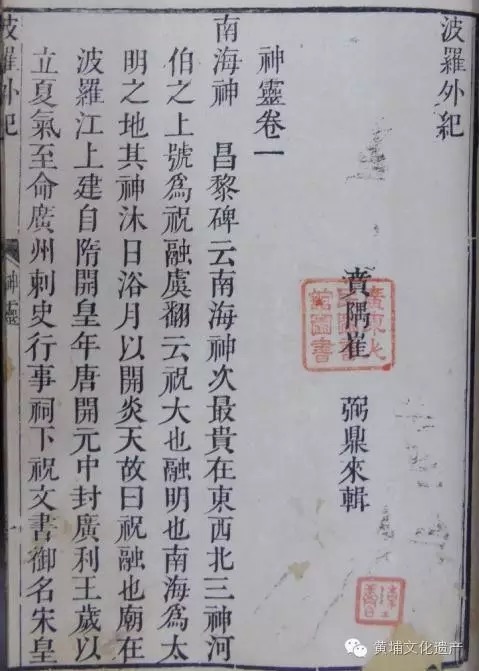 波羅外紀
賁隅崔 弼鼎來輯
神靈卷一
南海神 昌黎碑云南海神次最貴在東西北三神河
伯之上號爲祝融虞翻云祝大也融明也南海爲太
明之地其神沐日浴月以開炎天故曰祝融也廟在
波羅江上建自隋開皇年唐開元中封廣利王歲以
立夏氣至命廣州刺史行事祠下祝文書御名宋皇
波羅外紀
神靈
黄埔文化遗产